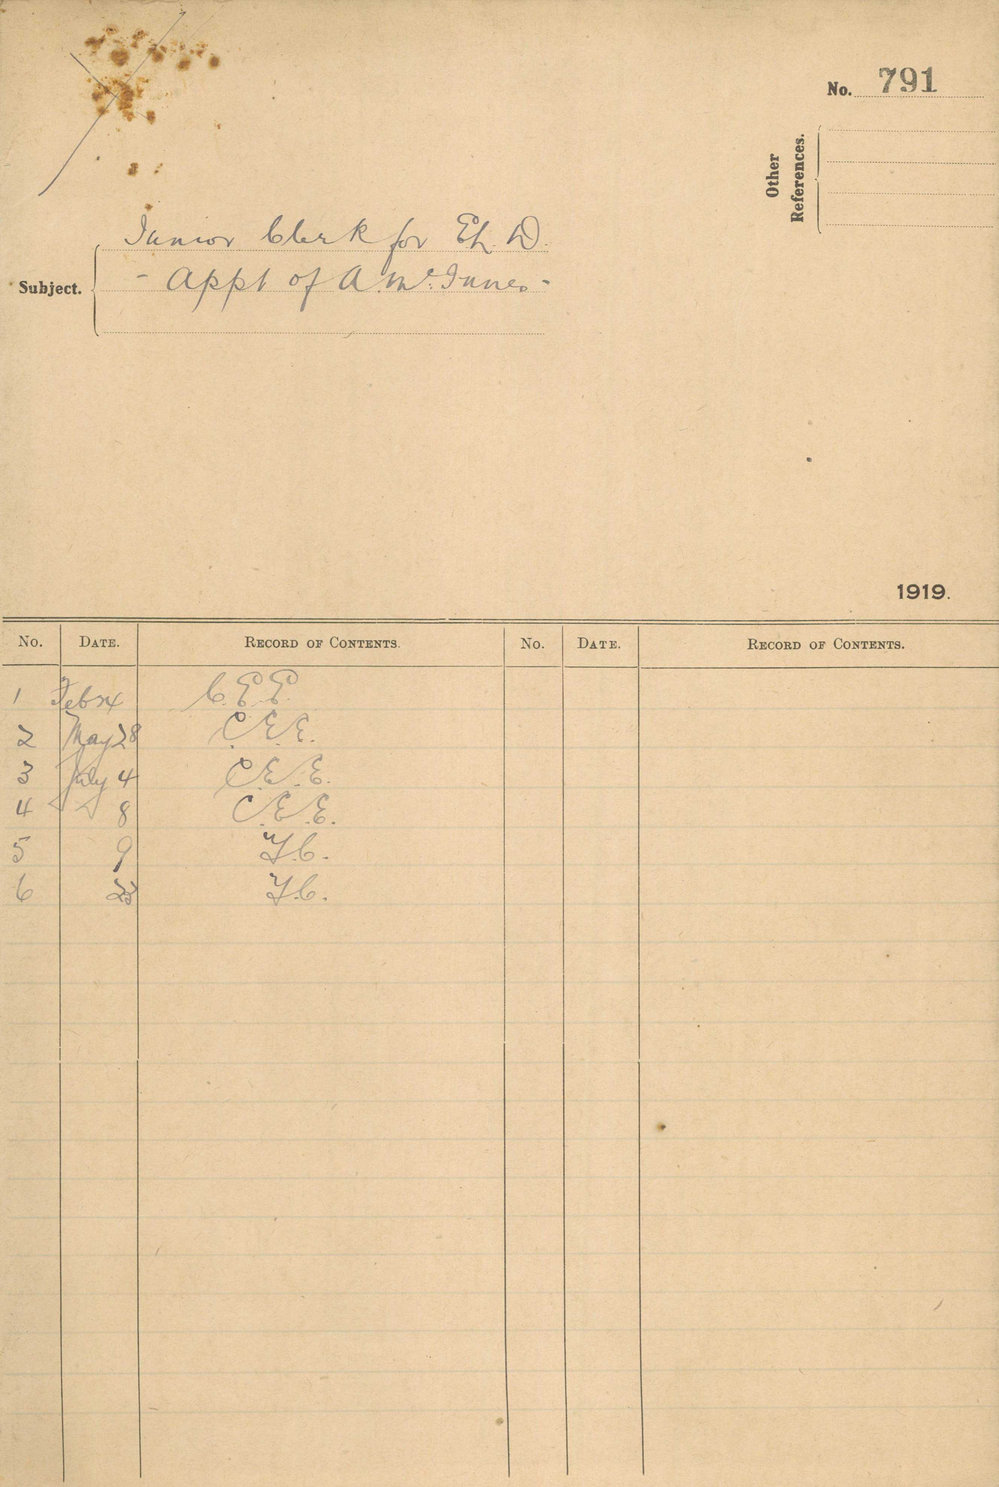 No. 791
Other
References.
Junior Clerk for El. D.
Subject.
- Appt of A. McInnes -
1919.
No. DATE. RECORD OF CONTENTS. No. DATE. RECORD OF CONTENTS.
1 Feb 24 C.E.E.
2 May 28 C.E.E.
3 July 4 C.E.E.
4 " 8 C.E.E.
5 9 T.C.
6 23 T.C.